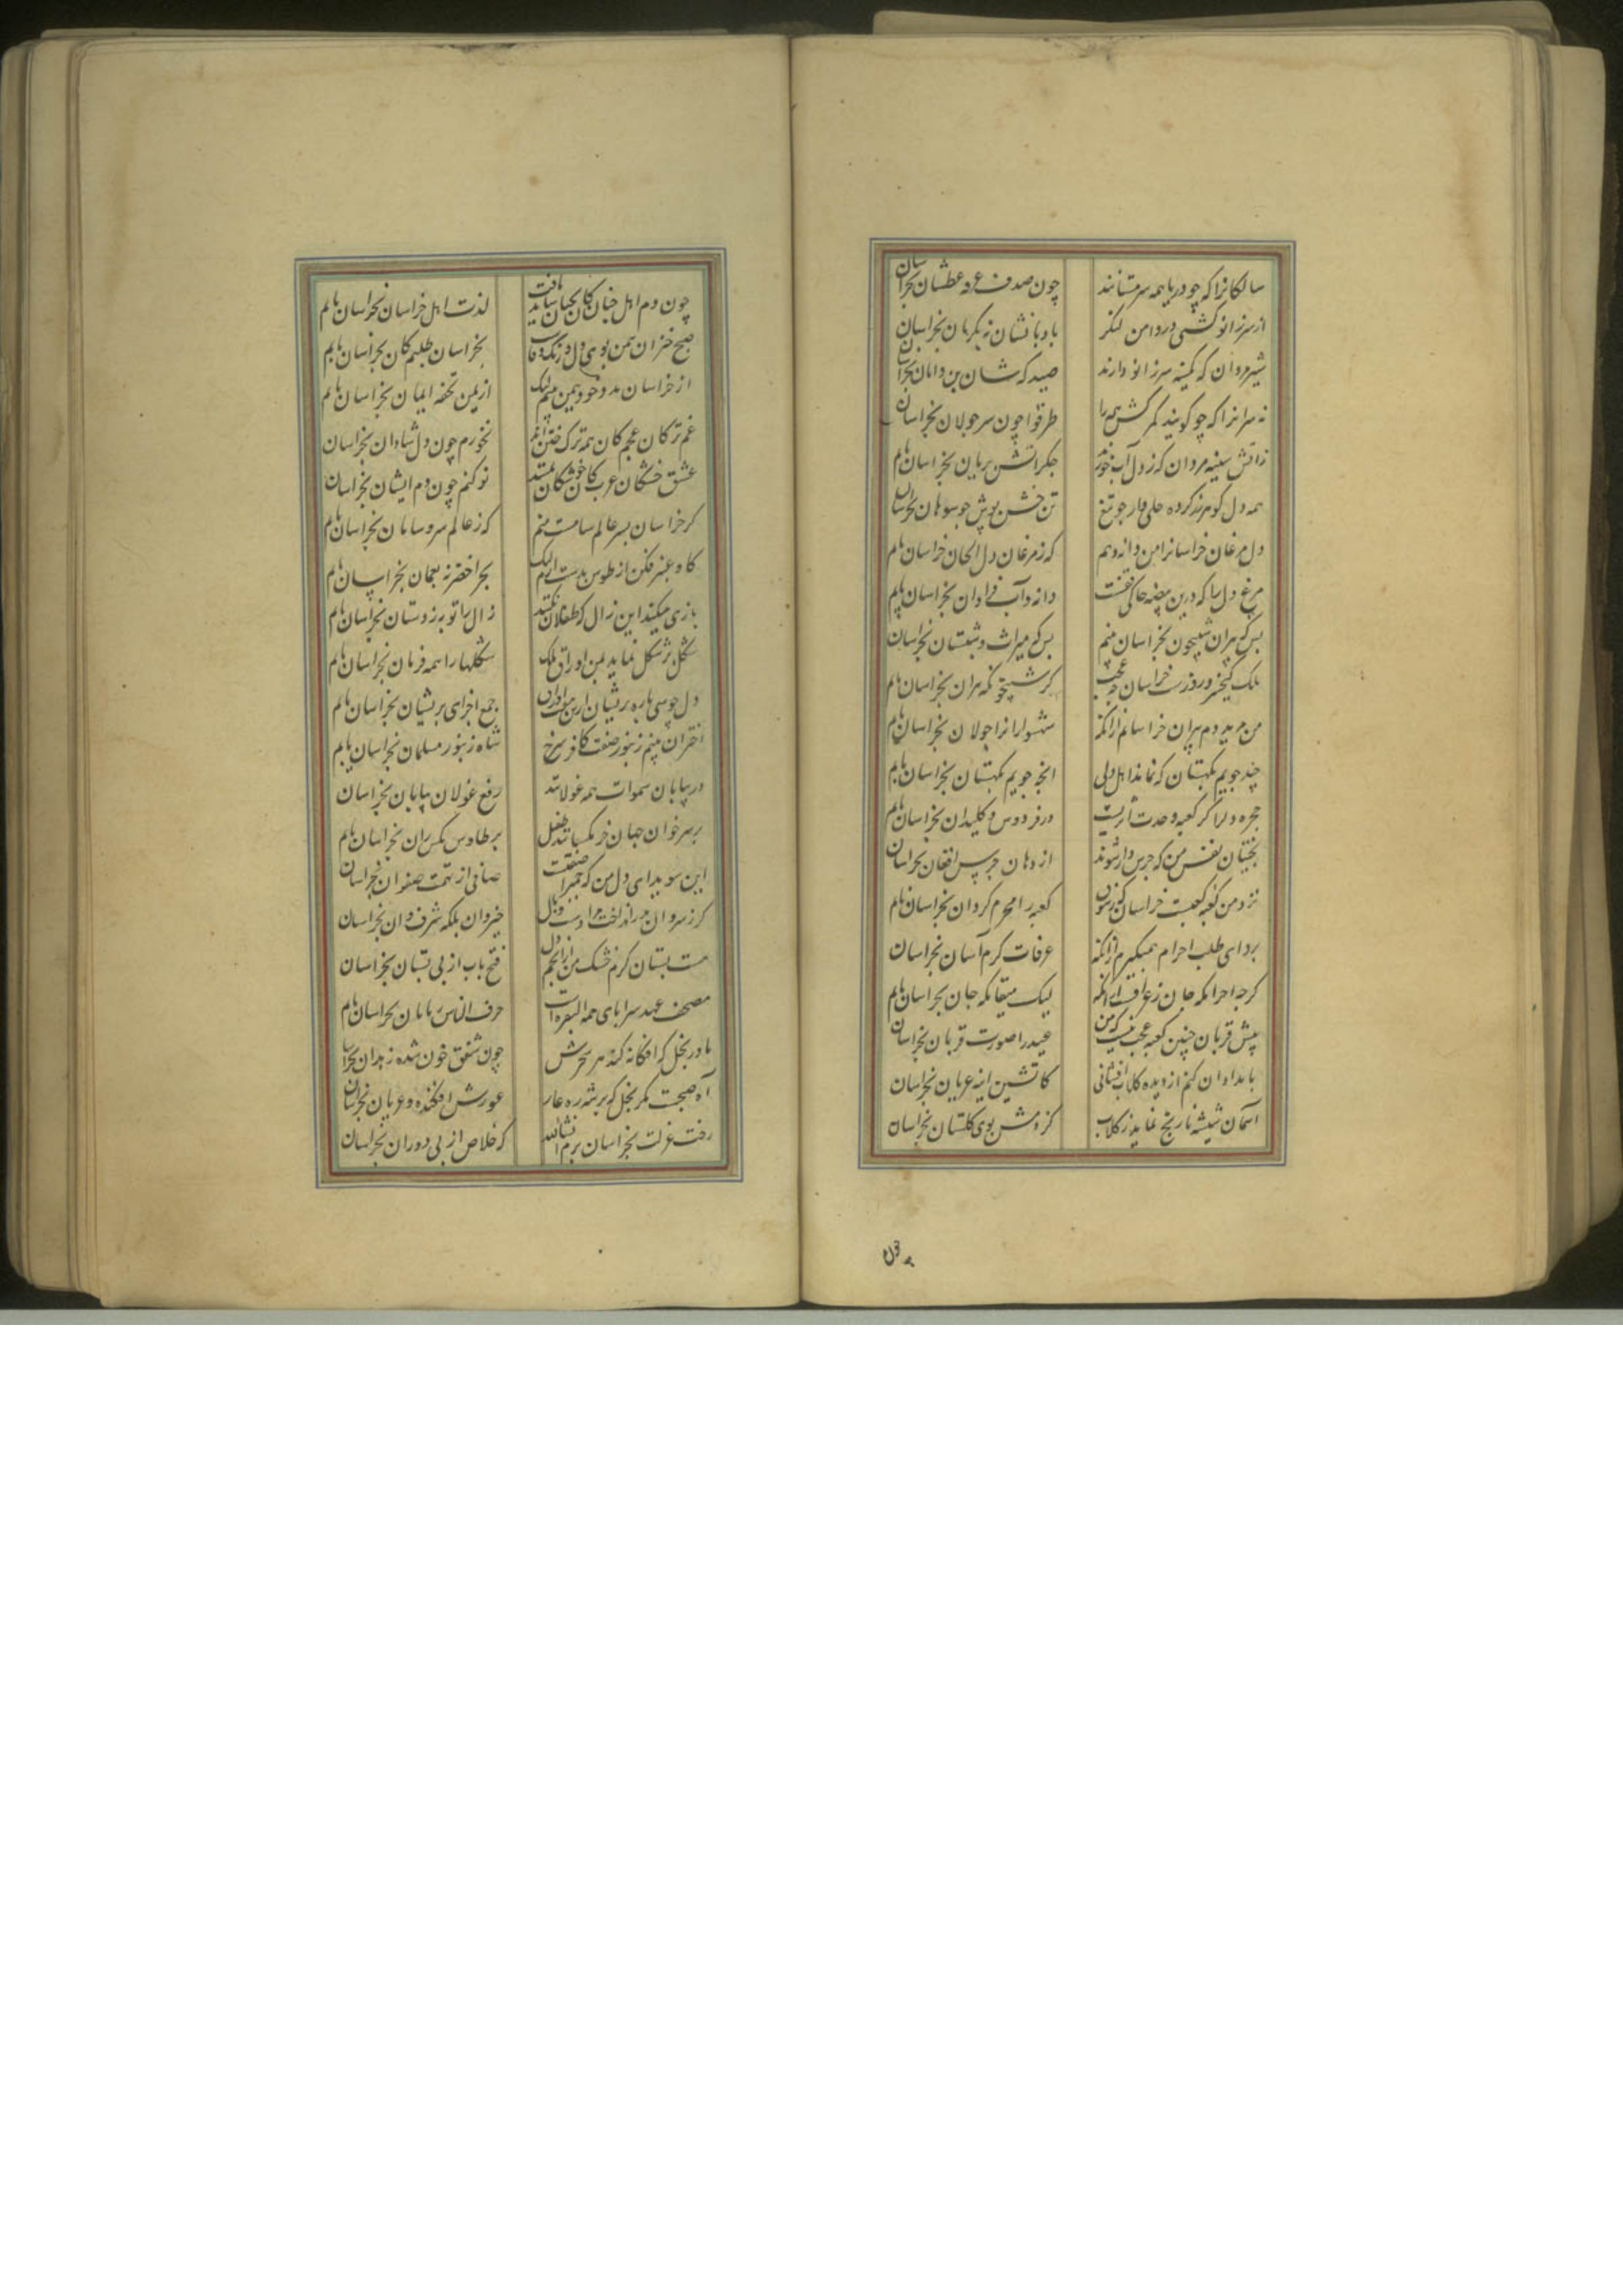 سالکانرا که چو دریا همه سرمستانند چون صدف غرقه عطشان بخراسان
از سر زانو کشتی و ز دامن لنگر بادبانشان ز گریبان بخراسان
شیرمردان که کمینه سر زانو دارند صیدگه شان بن دامان بخراسان
نه سرانرا که چو گویند کمر کش همه را طرقوا چون سر جولان بخراسان
زآتش سینه مردان که ز دل آب خورند جگر آتش بریان بخراسان یابم
همه دل گوهر و کرده حلی وار چو تیغ تن خشن پوش چو سوهان بخراسان
دل مرغان خراسانرا من دانه دهم که ز مرغان دل الحان خراسان یابم
مرغ دل را که درین بیضه خاکی قفست دانه و آب فراوان بخراسان یابم
بس که پیران شبیخون بخراسان بینم بس که میراث دبستان بخراسان
ملک کیخسرو روزست خراسان چه عجب که شبیخونگه پیران بخراسان یابم
من مرید دم پیران خراسانم از آنکه شهسوارانرا جولان بخراسان یابم
چند جویم بکهستان که نماند اهل دلی آنچه جویم بکهستان بخراسان یابم
حجره دلرا کز کعبه وحدت اثریست در فردوس و کلیدان بخراسان یابم
بختیان نفس من که جرس وار شوند از دهان جرس افغان بخراسان
نزد من کعبه کعبست خراسان کز شوق کعبه را محرم گردان بخراسان یابم
بردای طلب احرام همی‌گیرم از آنکه عرفات کرم آسان بخراسان
گرچه احرامگه جان ز عراقست از آنکه لیک میقاتگه جان بخراسان یابم
پیش قربان چنین کعبه عجب نیست که من عید را صورت قربان بخراسان
بامدادان کنم از دیده گلاب افشانی کآتشین آینه عریان بخراسان
آسمان شیشه نارنج نماید ز گلاب کز دمش بوی گلستان بخراسان
چون دم اهل جنان کان بجنان شاید یافت لذت اهل خراسان بخراسان یابم
صبح خیزان بمن بوی دل و رنگ وفا بخراسان طلبم کان بخراسان یابم
از خراسان مدد خود بیمن بینم لیک از یمن تحفه ایمان بخراسان یابم
غم ترکان عجم کان همه ترک ختن‌اند نخورم چون دل شادان بخراسان
عشق خشکان عرب کان خشکان یمنند نو کنم چون دم ایشان بخراسان
گر خراسان پسر عالم سامست منم که ز عالم سر و سامان بخراسان یابم
گاو عنبر فکن از طوس بدست آرم لیک بحر اخضر نه بعمان بخراسان یابم
بازی میکند این زال که طفلان نکنند زال را توبه ز دستان بخراسان یابم
شکل پر شکل نماید بمن اوراق فلک شکلها را همه فرمان بخراسان یابم
دل چو سی پاره پریشان ازین هفت اوراق جمع اجزای پریشان بخراسان یابم
اختران بینم زنبور صفت کافر سرخ شاه زنبور مسلمان بخراسان یابم
در بیابان سموات همه غولانند رفع غولان بیابان بخراسان
بر سر خوان جهان خرمگسانند طفیل پر طاوس مگس ران بخراسان یابم
این سویدای دل من که حمیرا صفتست صافی از تهمت صفوان بخراسان
گر ز شروان بدر انداخت مرا دست وبال خیروان بلکه شرفوان بخراسان
هست پستان کرم خشک من از انجم دل فتح باب از پی پستان بخراسان
مصحف عهد سراپای همه البقره است حرف والناس ز پایان بخراسان یابم
مادر نحل که افکانه کند هر سحرش چون شفق خون شده زهدان بخراسان
آه صبحست مگر نحل که بر شه ره غار عورش افکنده و عریان بخراسان
رخت عزلت بخراسان برم انشاالله که خلاص از پی دوران بخراسان